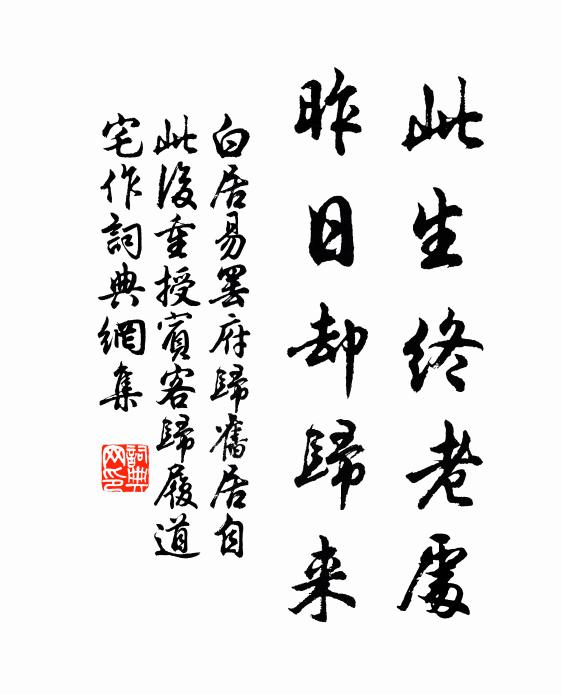 此生終老處
昨日却歸来
白居易罢府歸舊居自
此後重授賓客歸履道
宅作詞典網集
詞典網印